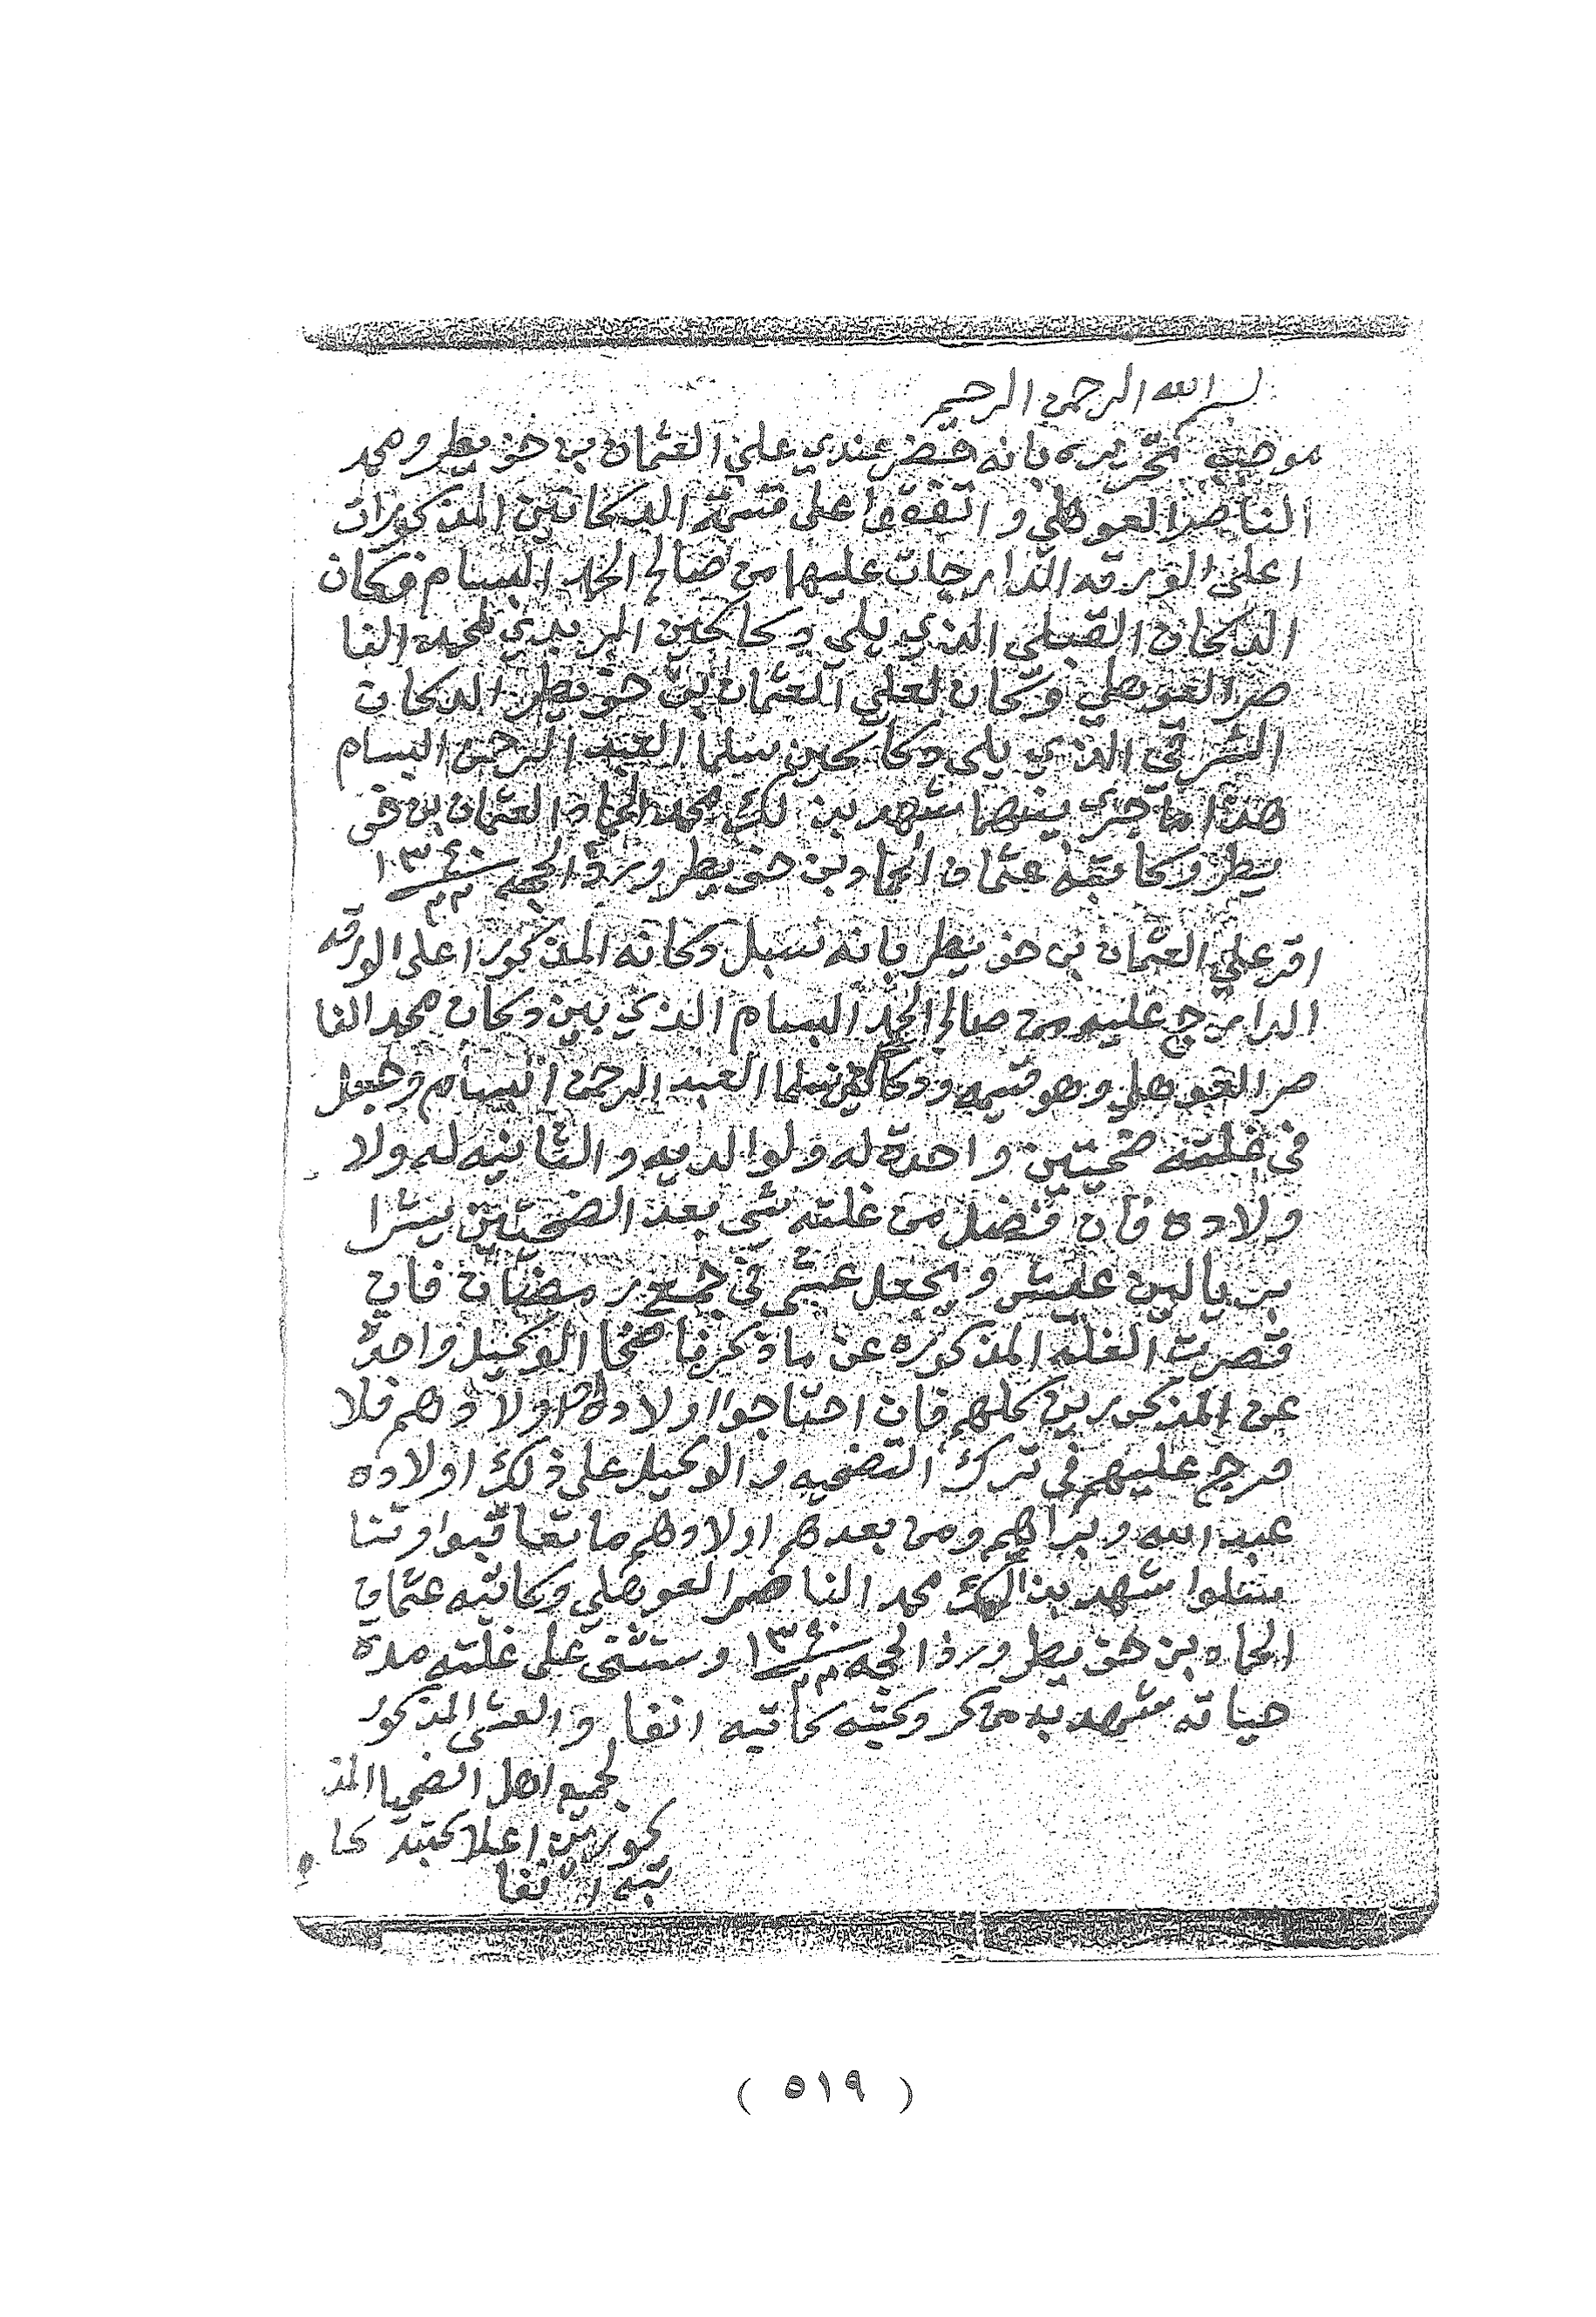 بسم الله الرحمن الرحيم
موجب تحريره بانه حضر عندي علي العثمان بن خويطر ومحمد
الناصر العوهلي واتفقوا على قسمة الدكانين المذكورات
اعلى الورقه الدارجات عليها من صالح الحمد البسام وكان
الدكان القبلي الذي يلي دكاكين البريدي لمحمد النا
صر العوهلي وكان لعلي العثمان بن خويطر الدكان
الشرقي الذي يلي دكاكين سلما العبد الرحمن البسام
هذا ما جرى بينهما شهد بذلك محمد الحماد العثمان بن خو
يطر وكاتبه عثمان الحماد بن خويطر ور ذالحجه ١٣٤٠
٢٣
اقر علي العثمان بن خويطر بانه سبل دكانه المذكور اعلى الورقه
الدارج عليه من صالح الحمد البسام الذي بين دكان محمد النا
صر العوهلي وهو قسيمه ودكاكين سلما العبد الرحمن البسام وجعل
في غلته ضحيتين واحدة له ولوالديه والثانيه له ولا
ولاده فان فضل من غلته شي بعد الضحيتين يشرا
بريالين عيش ويجعل عشى في جمع رمضان فان
قصرت الغله المذكوره عن ما ذكر فاضحا الوكيل واحدة
عن المذكورين كلهم فان احتاجوا اولاده او اولادهم فلا
حرج عليهم في ترك التضحيه والوكيل على ذلك اولاده
عبد الله وبراهيم ومن بعدهم اولادهم ما تعاقبوا وتنا
سلوا شهد بذلك محمد الناصر العوهلي وكاتبه عثمان
الحماد بن خويطر ور ذالحجه ١٣٤٠ وستثنى على غلته مدة
٢٣
حياته شهد به من ذكر وكتبه كاتبه انفا والعشى المذكور
لجميع اهل الضحيا المذ
كورين اعلا كتبه كا
تبه انفا
( ٥١٩ )